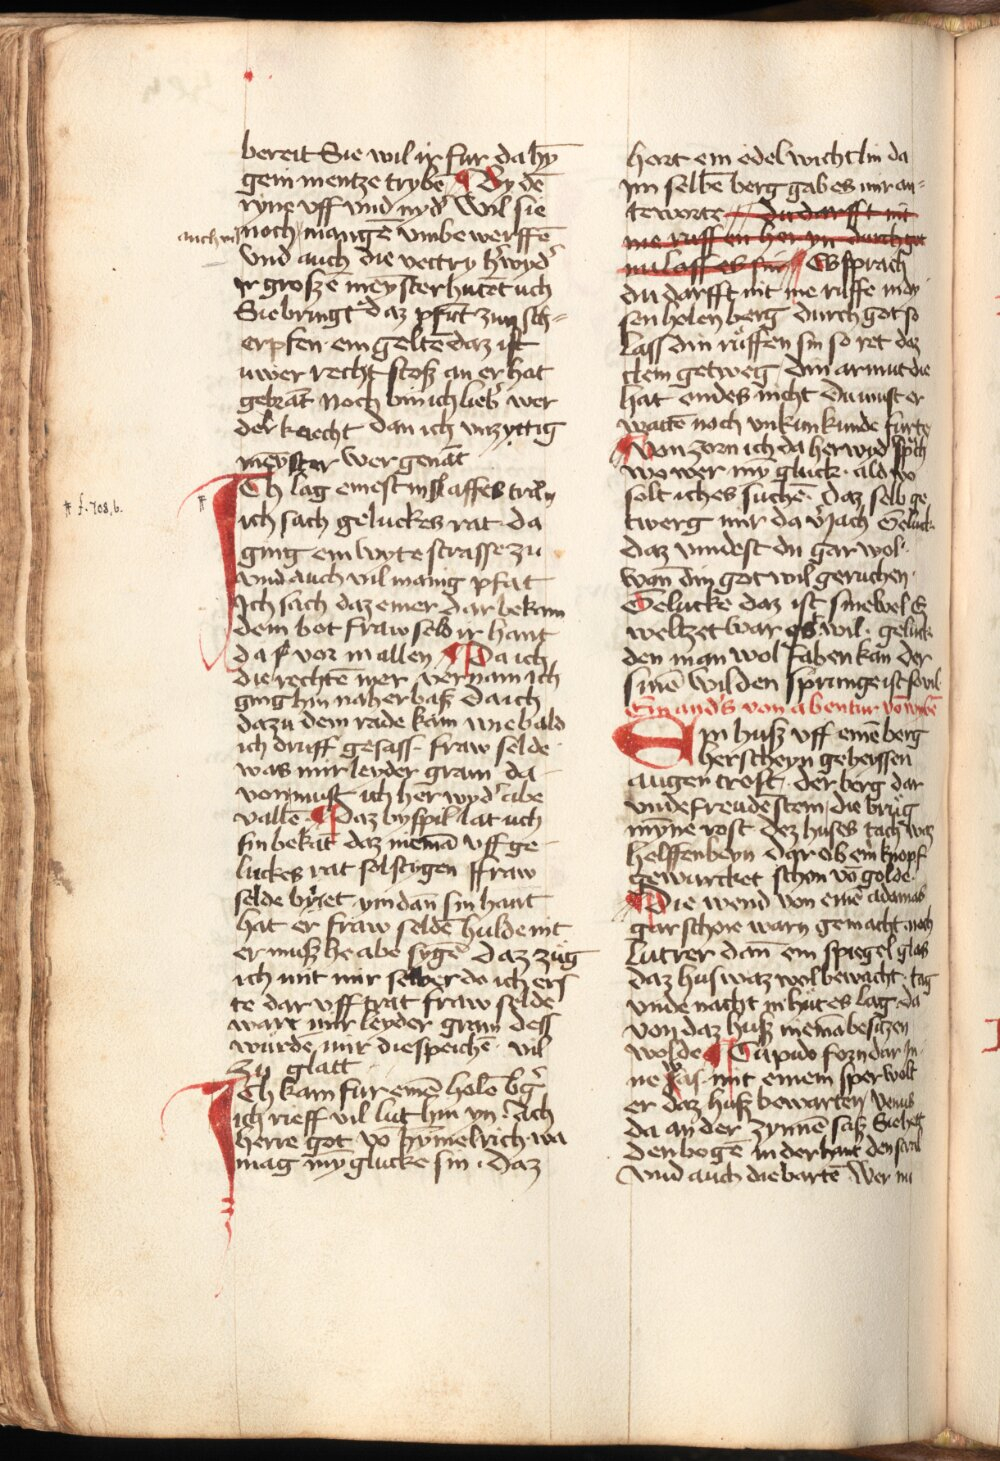 bereit Sie wil ir fur da hȳ
gein mentze trybē ¶ By dē
ryne vff vnd nyd' Wil sie
noch mange vmbe werffē
Vnd auch die vettry h'wyd'
ir großē meyster hutet uch
Sie bringt daz pfāt zun sch=
erpfen ein geltē daz ist
uwer recht stoß an er hat
gebrāt Noch bin ich lieb' wer
der knecht dan ich vnzyttig
meyster wer genāt
Ich lag eines in slaffes
ich sach geluckes rat da
ging ein wyte strasse zu
vnd auch vil manig pfat
Ich sach daz einer dar bekam
dem bot fraw seld ir hant
da vor in allen ¶ Da ich
die rechtē mer vernam ich
ging hin naher baß da ich
dazu dem rade kam wie bald
ich druff gesass fraw selde
was mir leyder gram da
von must ich her wyd' abe
vallē ¶ Daz byspil lat uch
sin bekāt daz niemā vff ge
luckes rat sol stygen ffraw
selde byet ym dan sin hant
hat er fraw seldē hulde nit
er muß he abe sygē daz zug
ich mit mir selber do ich ers
te dar vff trat fraw selde
wart mir leyder gram dess
wurde mir die speichē vil
zu glatt
Ich kam fur einē holē b'g
ich rieff vil lut hin yn Ach
herre got vō hymelrich wa
mag my glucke sin Daz
hort ein edel wichtlin da
ym selbē berg gab es mir an=
tworte du darfft nit
me ruff en her yn durch got
nu laß es sin ¶ Es sprach
du darfft nit me ruffe in dy
sen holen berg durch got so
lass din ruffen sin so ret daz
clein getweg din armut die
hat endes nicht du must er
wartē noch
¶ Von zorn ich da herwyd' sp'ch
wo wer my gluck ald wo
solt ich es suchē daz selb ge
twerg mir da v'iach Geluck
daz vindest du gar wol
wan din got wil geruchen
Gelucke daz ist sinewel Es
weltzet war es wil geluck
den man wol haben kan der
sinē wilden sprunge ist so vil
Ein and's von abentur vō
Ein huß vff einē berg
herscheyn geheissen
augen trost der berg dar
vnde freudestein die brug
myne rost dez huses tach waz
helffenbeyn dar ob ein knopf
gewurcket schon vō golde
¶ Die wend von eime adamas
gar schone warn gemacht noch
lutrer dan ein spiegel glas
daz hus waz wol bewacht tag
vnde nacht in hut es lag da
von daz huß niemā besitzen
wolde ¶ Cupido forn dar in
ne was mit einem sper wolt
er daz huß bewarten Venus
da an der zynnē saß Sie het
den bogē in der hant den stral
vnd auch die bartē Wer in
auch
# f. 708, b.